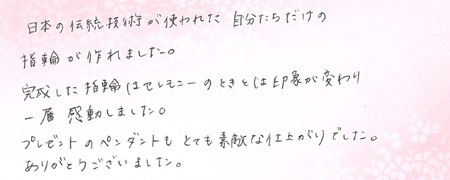 日本の伝統技術が使われた 自分たちだけの
指輪が作れました。
完成した指輪はセレモニーのときとは印象が変わり
一層 感動しました。
プレゼントのペンダントも とても素敵な仕上がりでした。
ありがとうございました。